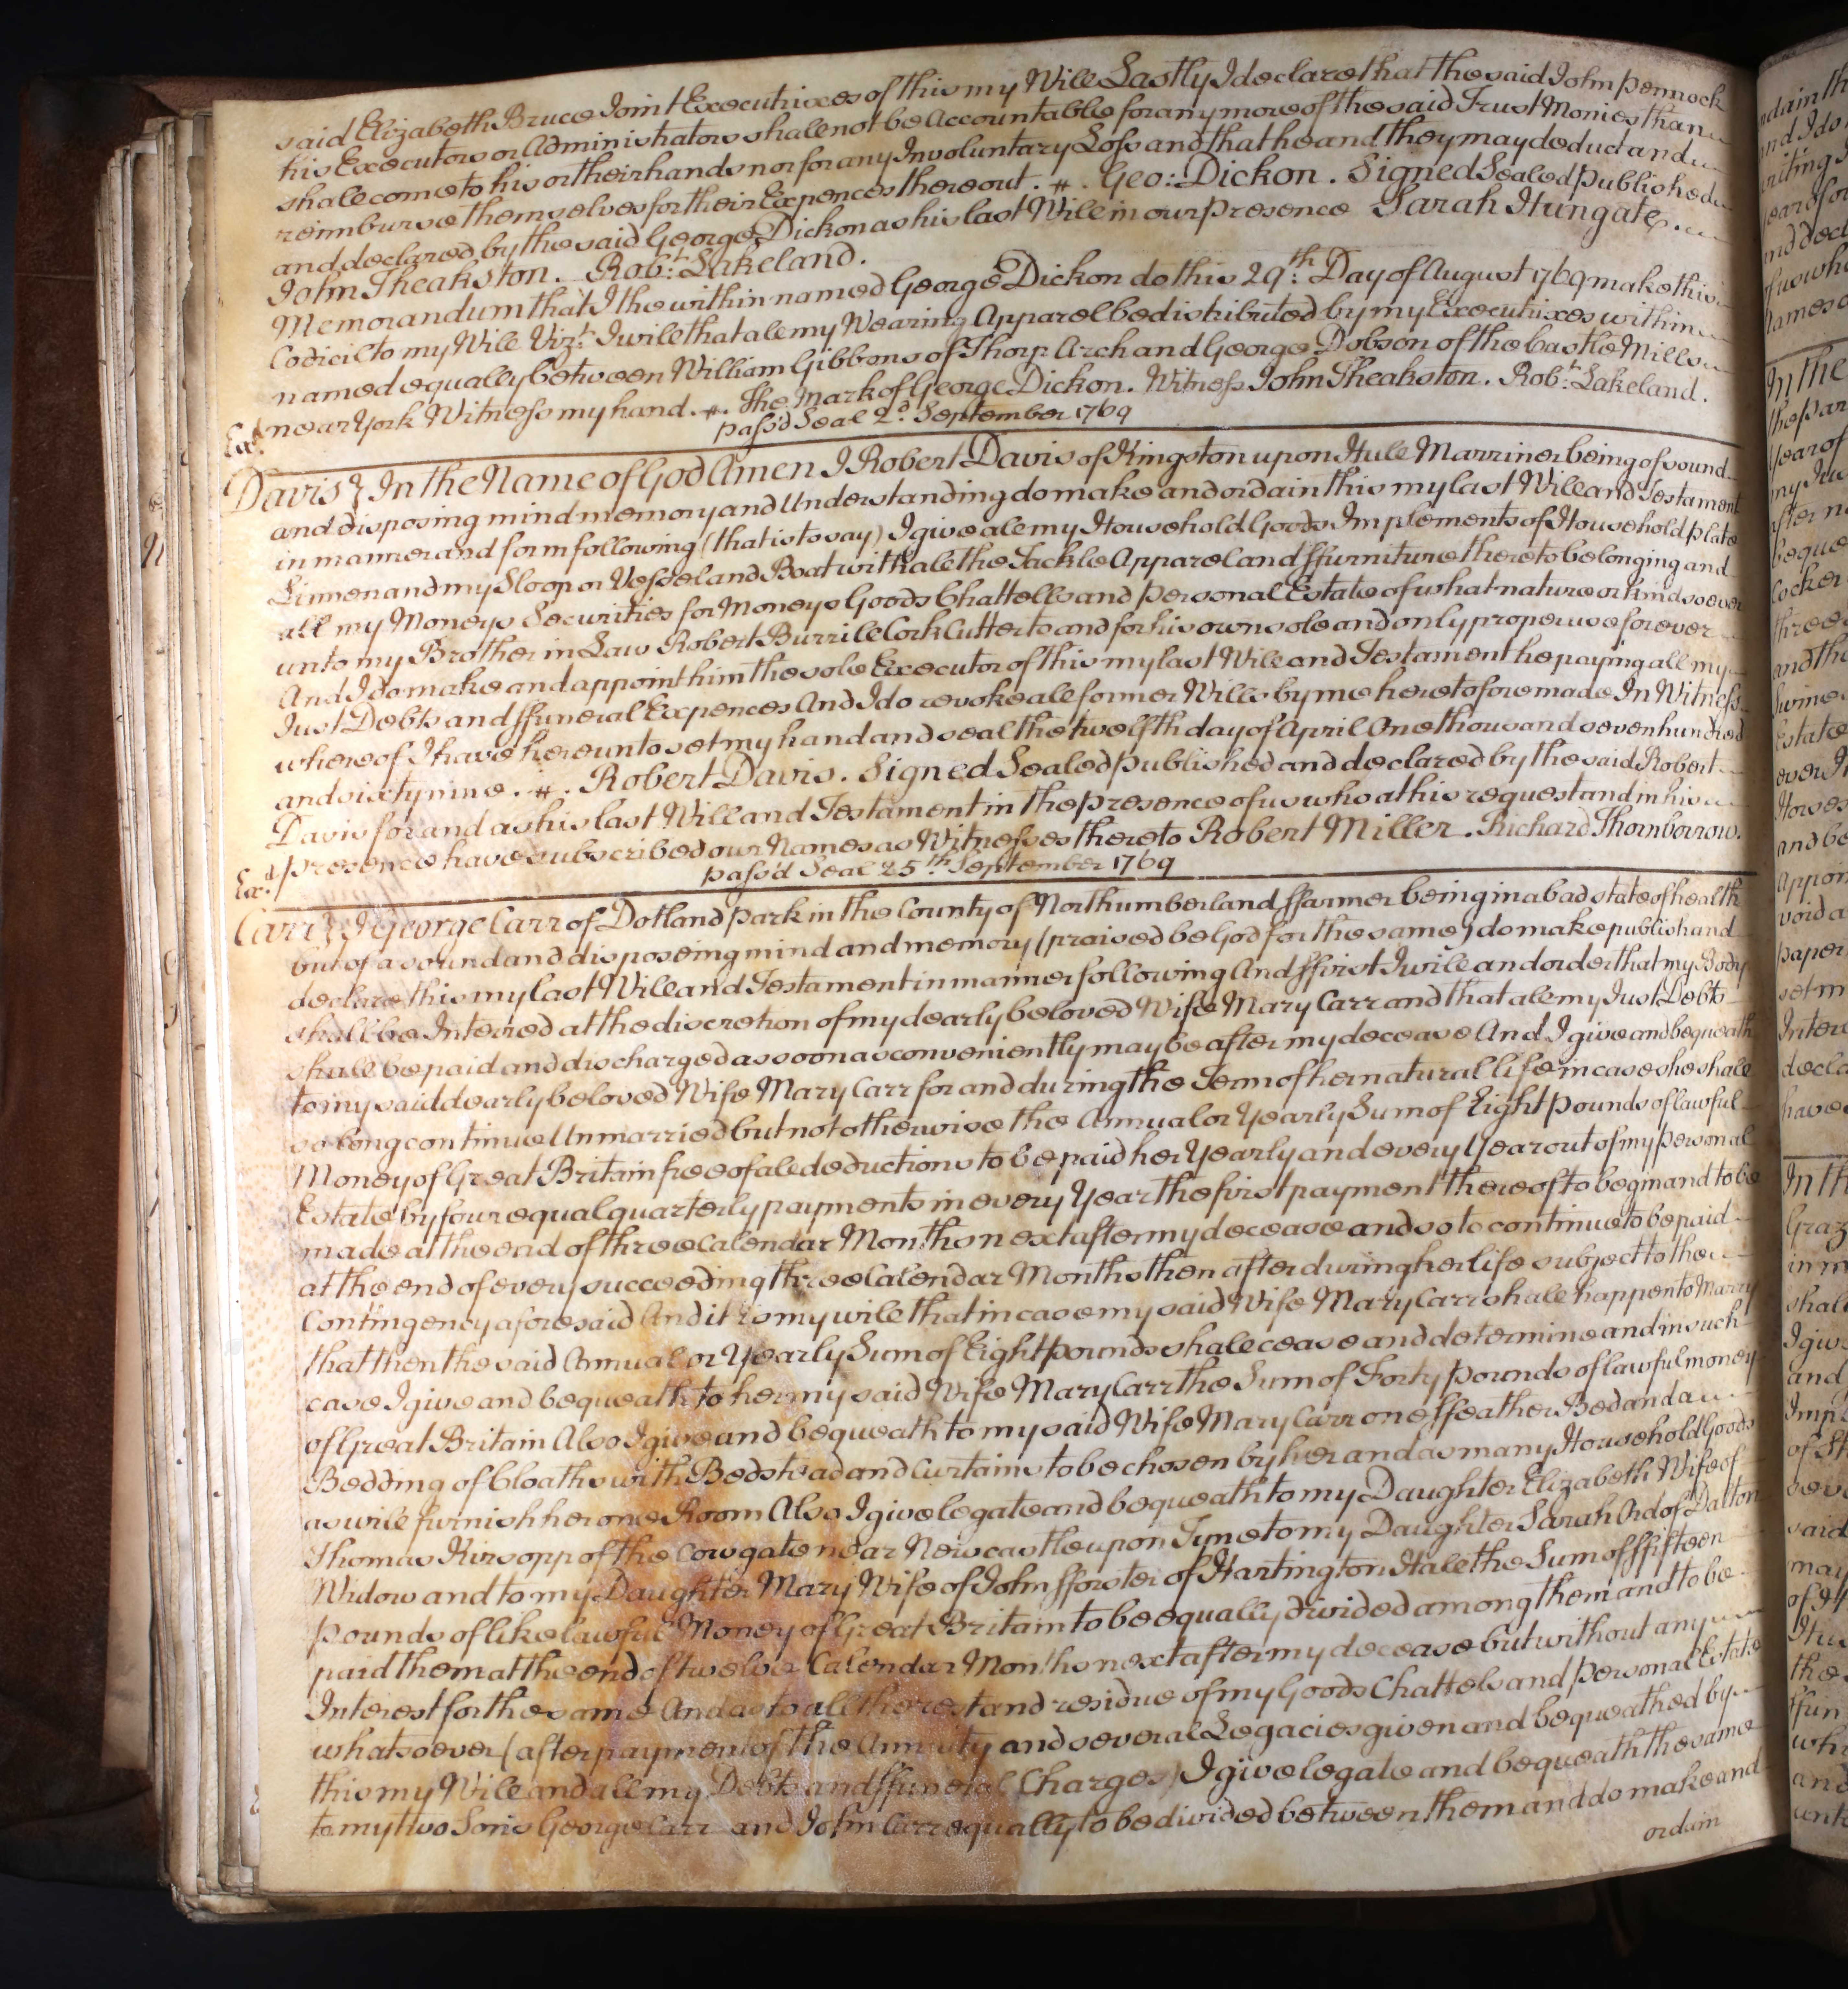 said Elizabeth Bruce Joint Executrixes of this my Will Lastly I declare that the said John Pennock
his Executors or Administrators shall not be Accountable for any more of the said Trust Monies than
shall come to his or their hands nor for any Involuntary Loss and that he and they may deduct and
reimburse themselves for their Expences thereout . # . Geo: Dickon . Signed Sealed Published
and declared by the said George Dickon as his last Will in our presence Sarah Hungate .
John Theakston . Rob:t Lakeland .
Memorandum that I the within named George Dickon do this 29:th Day of August 1769 make this
Codicil to my Will Viz:t I will that all my Wearing Apparel be distributed by my Executrixes within
named equally between William Gibbons of Thorp Arch and George Dobson of the Castle Mills
near York Witness my hand . # . The Mark of George Dickon . Witness John Theakston . Rob:t Lakeland .
Ex:d
pass'd Seal 2:d September 1769
Davis } In the Name of God Amen I Robert Davis of Kingston upon Hull Marriner being of sound
and disposing mind memory and Understanding do make and ordain this my last Will and Testament
in manner and form following (that is to say) I give all my Household Goods Implements of Household plate
Linnen and my Sloop or Vessel and Boat with all the Tackle Apparel and ffurniture thereto belonging and
all my Moneys Securities for Moneys Goods Chattells and personal Estate of what nature or kind soever
unto my Brother in Law Robert Burrill Cork Cutter to and for his own sole and only proper use for ever
And I do make and appoint him the sole Executor of this my last Will and Testament he paying all my
Just Debts and ffuneral Expences And I do revoke all former Wills by me heretofore made In Witness
whereof I have hereunto set my hand and seal the twelfth day of April One thousand seven hundred
and sixty nine . # . Robert Davis . Signed Sealed published and declared by the said Robert
Davis for and as his last Will and Testament in the presence of us who at his request and in his
presence have subscribed our Names as Witnesses thereto Robert Miller . Richard Thornborrow .
Ex:d
pass'd Seal 25:th September 1769
Carr } I George Carr of Dotland park in the County of Northumberland ffarmer being in a bad state of health
but of a sound and disposeing mind and memory (praised be God for the same) do make publish and
declare this my last Will and Testament in manner following And ffirst I will and order that my Body
shall be Interred at the discretion of my dearly beloved Wife Mary Carr and that all my Just Debts
shall be paid and discharged as soon as conveniently may be after my decease And I give and bequeath
to my said dearly beloved Wife Mary Carr for and during the Term of her natural life in case she shall
so long continue Unmarried but not otherwise the Annual or Yearly Sum of Eight pounds of lawful
Money of Great Britain free of all deductions to be paid her Yearly and every Year out of my personal
Estate by four equal quarterly payments in every Year the first payment thereof to begin and to be
made at the end of three Calendar Months next after my decease and so to continue to be paid
at the end of every succeeding three Calendar Months then after during her life subject to the
Contingency aforesaid And it is my will that in case my said Wife Mary Carr shall happen to Marry
that then the said Annual or Yearly Sum of Eight pounds shall cease and determine and in such
case I give and bequeath to her my said Wife Mary Carr the Sum of Forty pounds of lawful money
of Great Britain Also I give and bequeath to my said Wife Mary Carr one ffeather Bed and a
Bedding of Cloaths with Bedstead and Curtains to be chosen by her and as many Household Goods
as will furnish her one Room Also I give legate and bequeath to my Daughter Elizabeth Wife of
Thomas Kirsopp of the Cowgate near Newcastle upon Tyne to my Daughter Sarah Ord of Dalton
Widow and to my Daughter Mary Wife of John fforster of Hartington Hall the Sum of ffifteen
pounds of like lawful Money of Great Britain to be equally divided among them and to be
paid them at the end of twelve Calendar Months next after my decease but without any
Interest for the same And as to all the rest and residue of my Goods Chattels and personal Estate
whatsoever (after payment of the Annuity and several Legacies given and bequeathed by
this my Will and all my Debts and ffuneral Charges) I give legate and bequeath the same
to my two Sons George Carr and John Carr equally to be divided between them and do make and
ordain